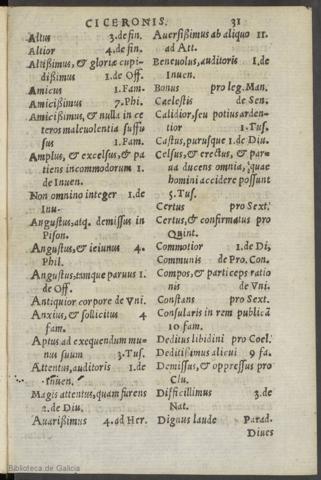 CICERONIS. 31
Altus 3.de fin.
Altior 4.de fin.
Altißimus, & gloriæ cupi-
dißimus 1.de Off.
Amicus 1.Fam.
Amicißimus 7.Phi.
Amicißimus, & nulla in ce
teros maleuolentia suffu
sus 1.Fam.
Amplus, & excelsus, & pa
tiens incommodorum 1.
de Inuen.
Non omnino integer 1.de
Inu.
Angustus, atq. demissus in
Pison.
Angustus, & ieiunus 4.
Phil.
Angustus, tamque paruus 1.
de Off.
Antiquior corpore de Vni.
Anxius, & sollicitus 4
fam.
Aptus ad exequendum mu-
nus suum 3.Tus.
Attentus, auditoris 1.de
Inuen.
Magis attentus, quam furens
2.de Diu.
Auarißimus 4.ad Her.
Auersißimus ab aliquo 11.
ad Att.
Beneuolus, auditoris 1.de
Inuen.
Bonus pro leg. Man.
Caelestis de Sen.
Calidior, seu potius arden-
tior 1.Tus.
Castus, purusque 1.de Diu.
Celsus, & erectus, & par-
ua ducens omnia, quæ
homini accidere possunt
5.Tus.
Certus pro Sext.
Certus, & confirmatus pro
Quint.
Commotior 1.de Di,
Communis de Pro. Con.
Compos, & particeps ratio
nis de Vni.
Constans pro Sext.
Consularis in rem publicã
10 fam.
Deditus libidini pro Coel.
Deditißimus alicui 9 fa.
Demissus, & oppressus pro
Clu.
Difficillimus 3.de
Nat.
Dignus laude Parad.
Diues
Biblioteca de Galicia